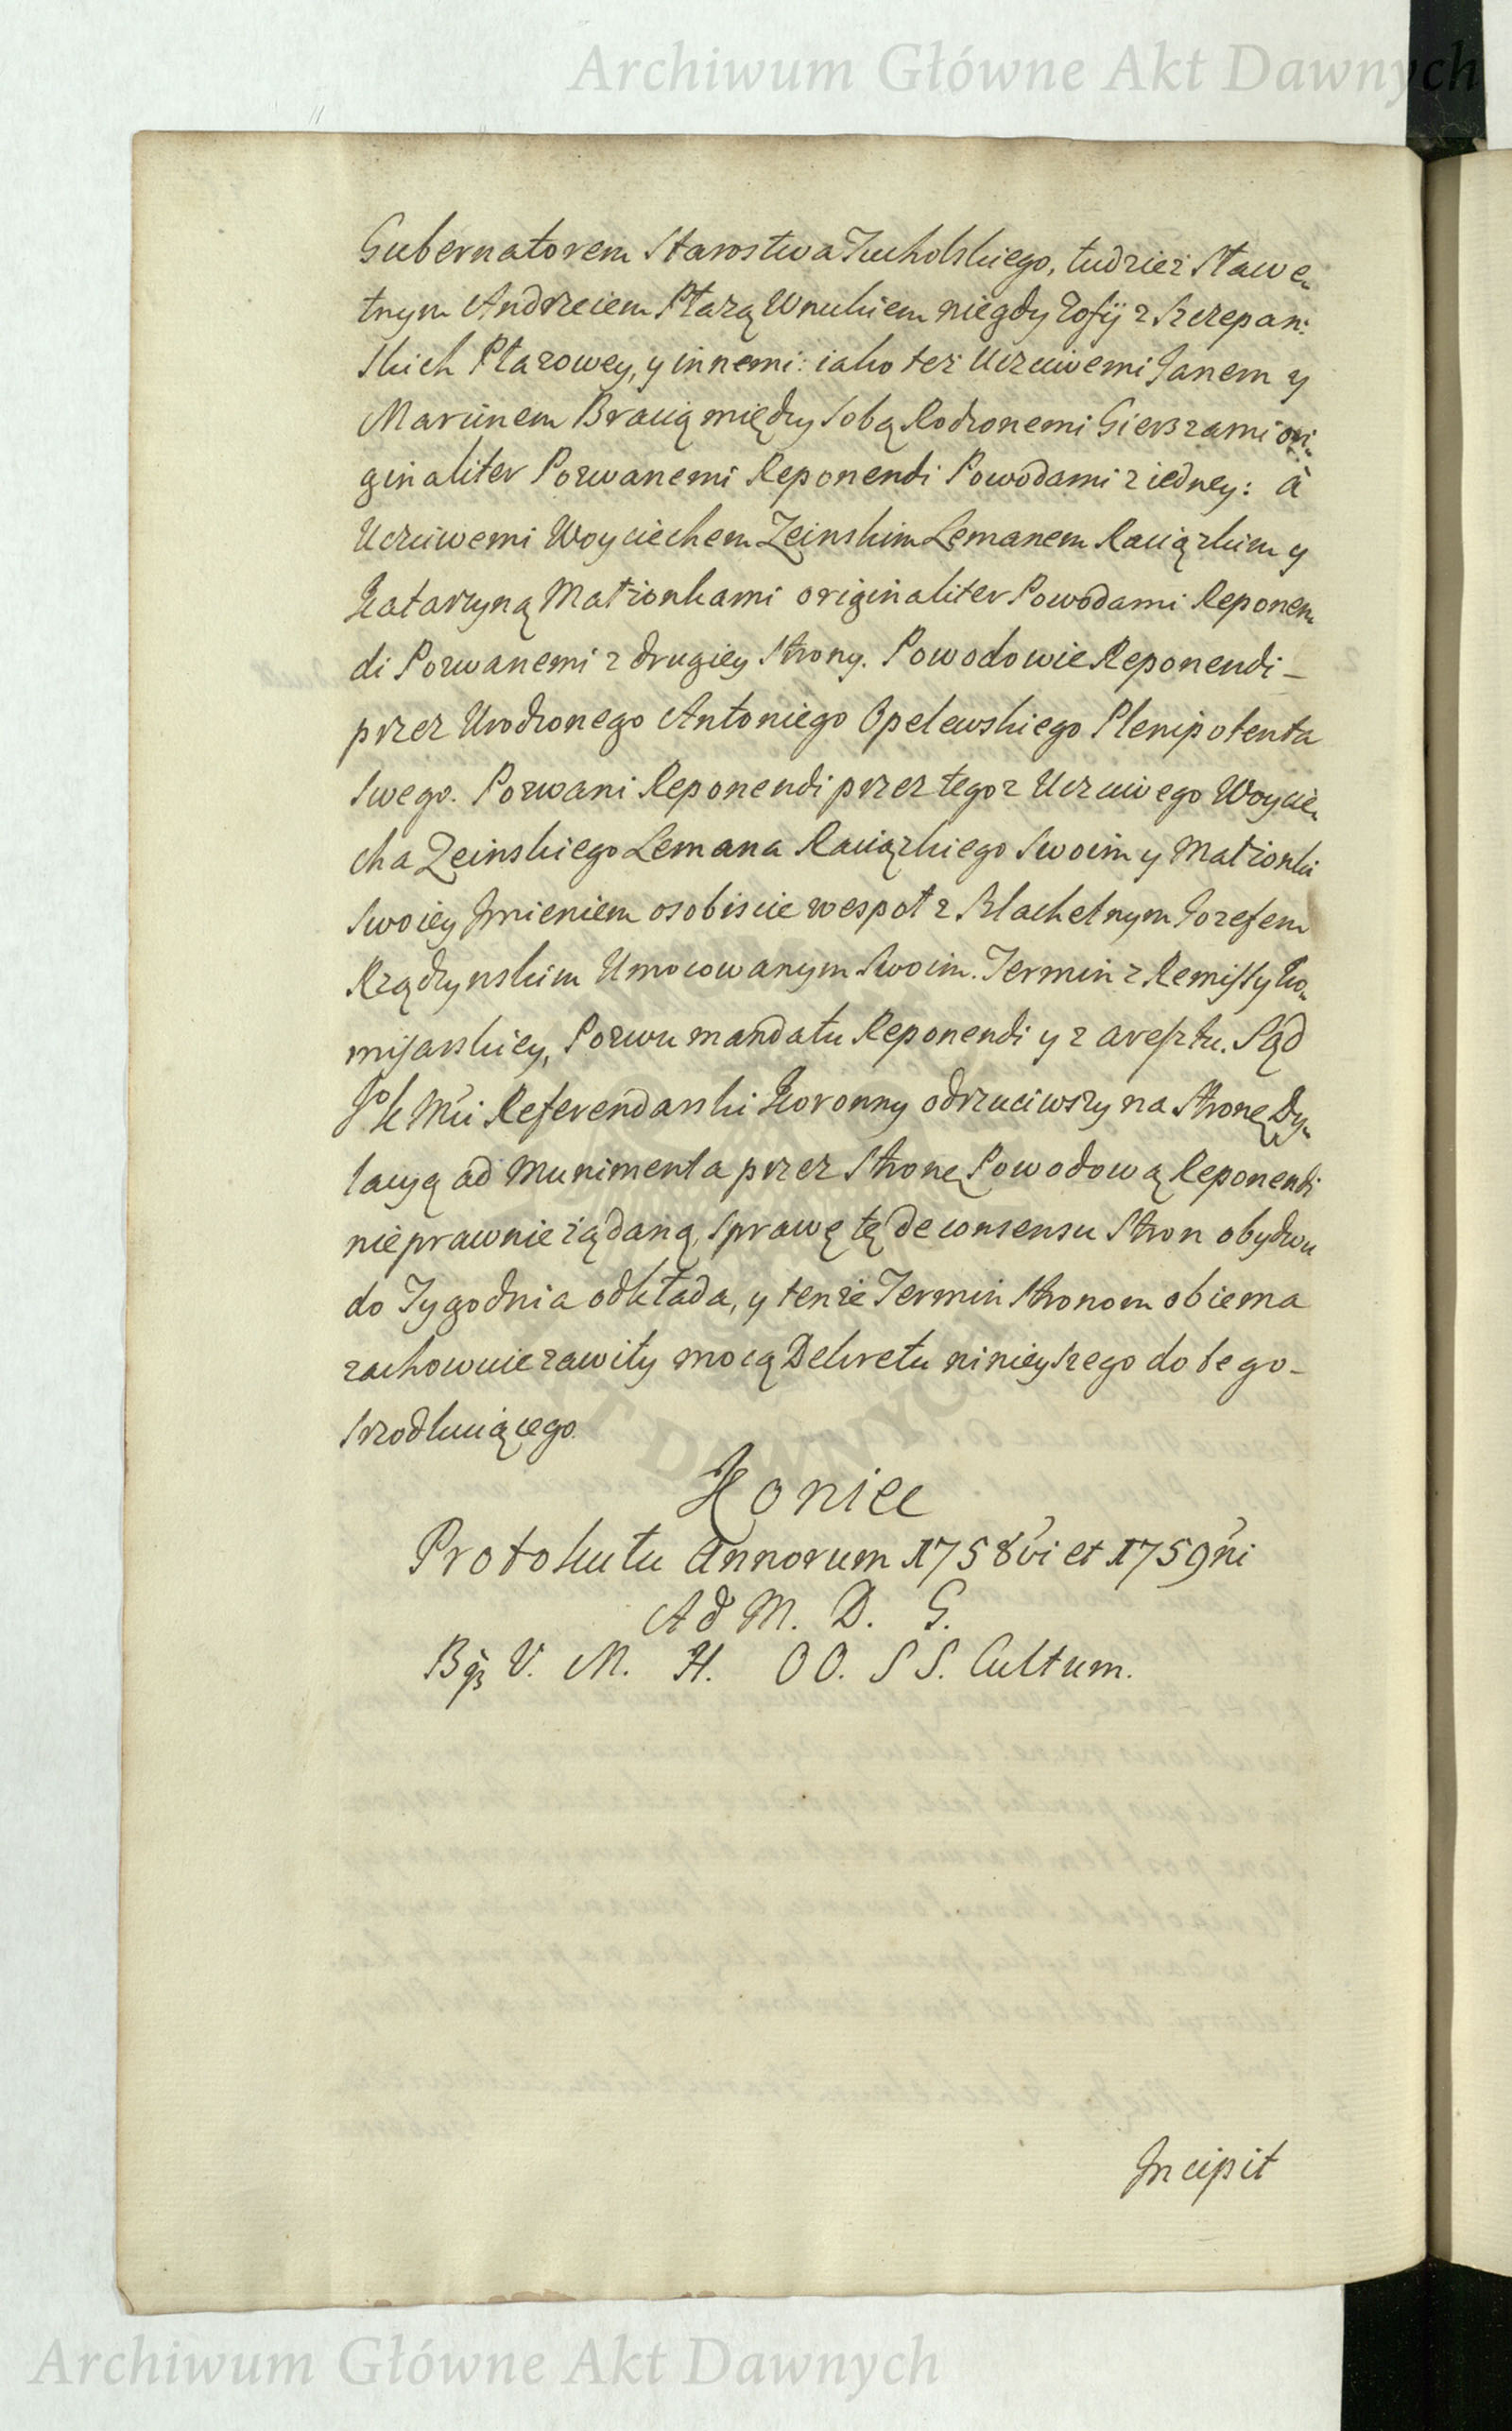 Archiwum Główne Akt Dawnych
Gubernatorem Starostwa Tucholskiego, tudzież Sławe„
tnym Andrzeiem Ptarą Wnukiem niegdy Zofij z Szczepań:
skich Ptarowey, y innemi: iako też Uczciwemi Janem y
Marcinem Bracią między sobą Rodzonemi Gierszami ori:
ginaliter Pozwanemi Reponendi Powodami z iedney: à
Uczciwemi Woyciechem Zeinskim Lemanem Raciązkim y
Katarzyną Małżonkami originaliter Powodami Reponen„
di Pozwanemi z drugiey Strony. Powodowie Reponendi –
przez Urodzonego Antoniego Opelewskiego Plenipotenta
swego. Pozwani Reponendi przez tegoz Uczciwego Woycie„
cha Zeinskiego Lemana Raciązkiego swoim y Małżonki
swoiey Jmieniem osobiscie wespoł z Szlachetnym Jozefem
Rządzynskim Umocowanym swoim. Termin z Remissy Ko„
misarskiey, Pozwu mandatu Reponendi y z aresztu. Sąd
JoK Mci Referendarski Koronny odrzuciwszy na Stronę Dy„
lacyą ad Munimenta przez Stronę Powodową Reponendi
nieprawnie żądaną, sprawę tę de consensu Stron obydwu
do Tygodnia odkłada, y tenże Termin Stronom obiema
zachowuie zawity mocą Dekretu ninieyszego do tego –
srzodkuiącego.
Koniec
Protokułu Annorum 1758vi et 1759ni
Ad M. D. G.
Bqz V. M. H. OO. SS. Cultum.
Incipit
Archiwum Główne Akt Dawnych